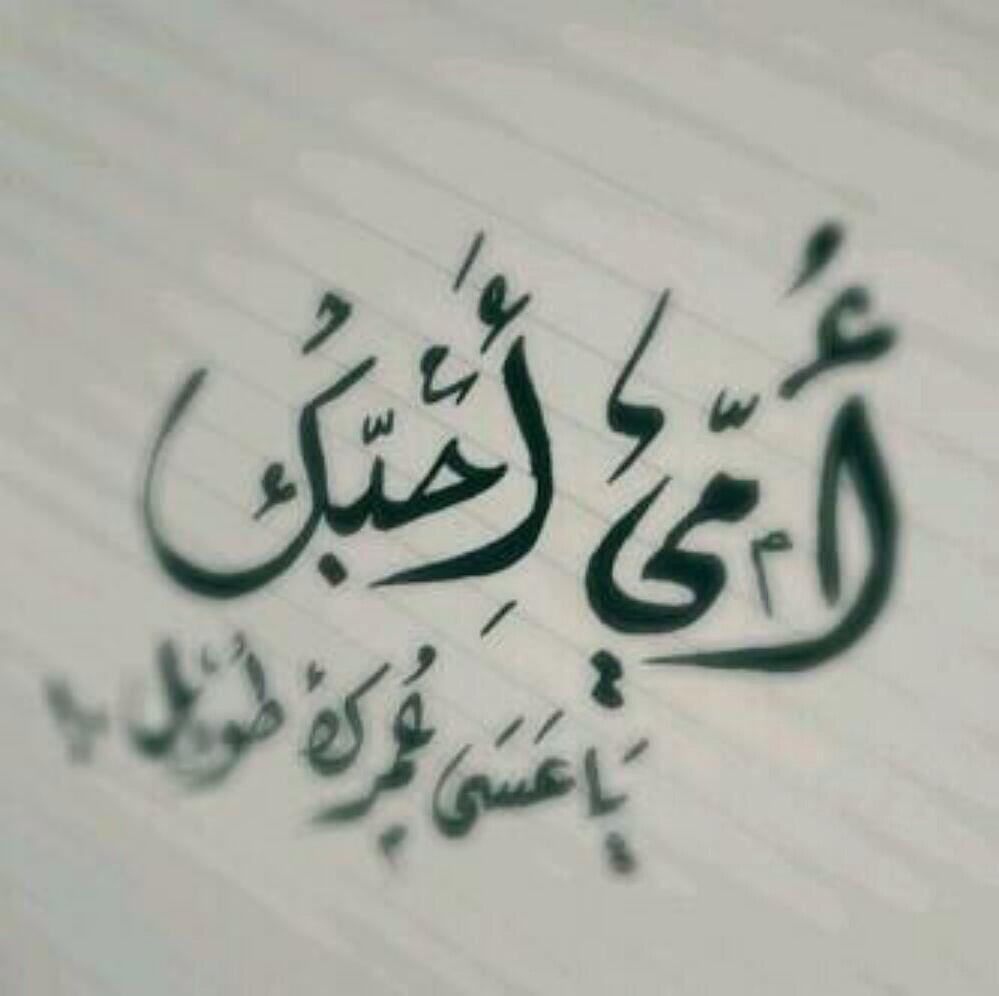 أُمّي أُحبّكُ
يَا عَسَى عُمرك طويل